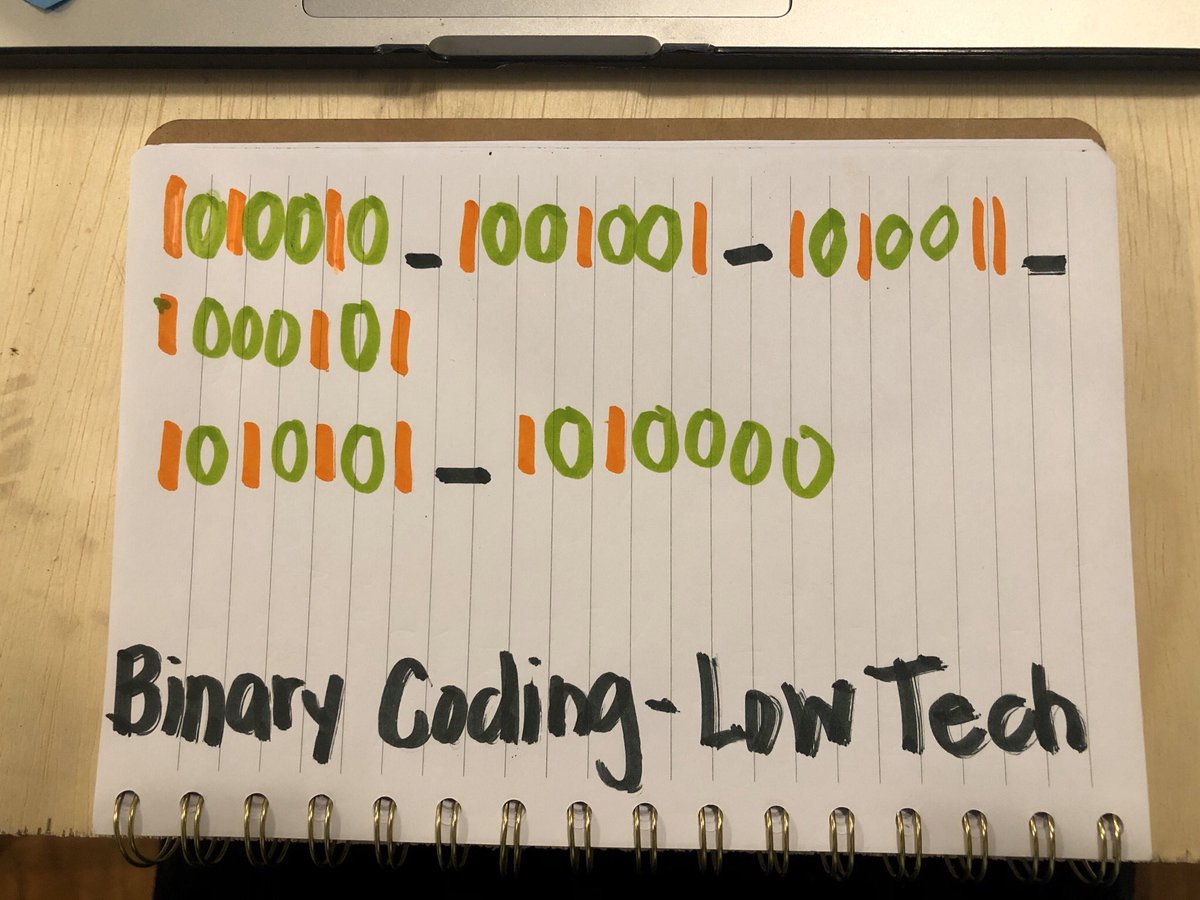 1010010_1001001_1010011_
1000101
1010101_1010000
Binary Coding-Low Tech